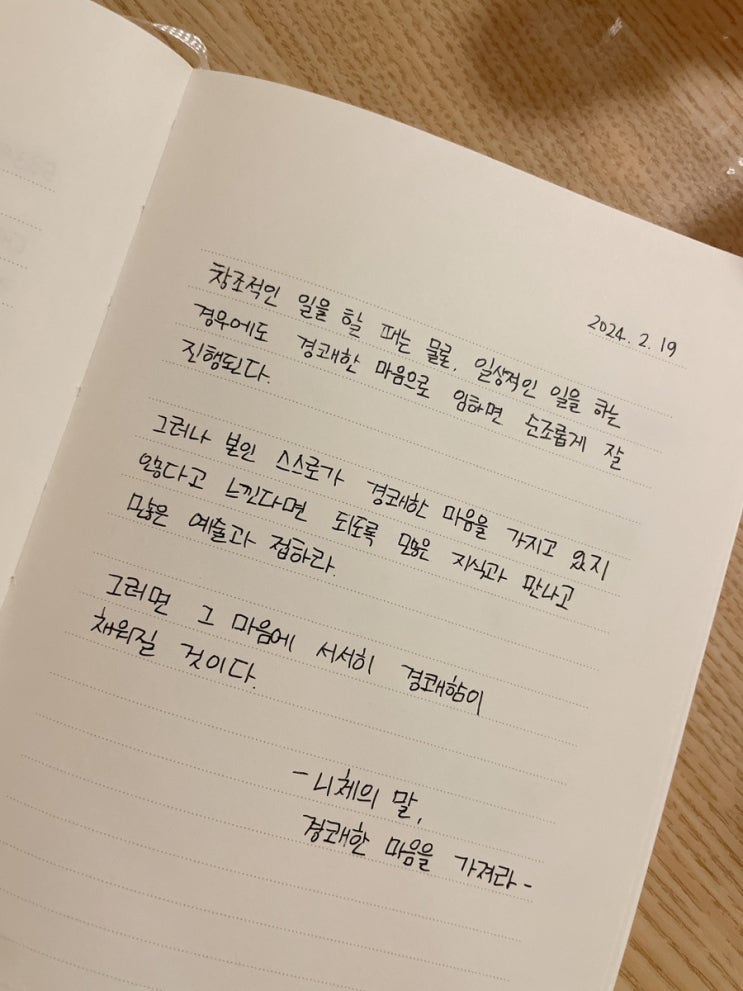 2024. 2. 19
창조적인 일을 할 때는 물론, 일상적인 일을 하는
경우에도 경쾌한 마음으로 임하면 순조롭게 잘
진행된다.
그러나 본인 스스로가 경쾌한 마음을 가지고 있지
않다고 느낀다면 되도록 많은 지식과 만나고
많은 예술과 접하라.
그러면 그 마음에 서서히 경쾌함이
채워질 것이다.
- 니체의 말,
경쾌한 마음을 가져라 -